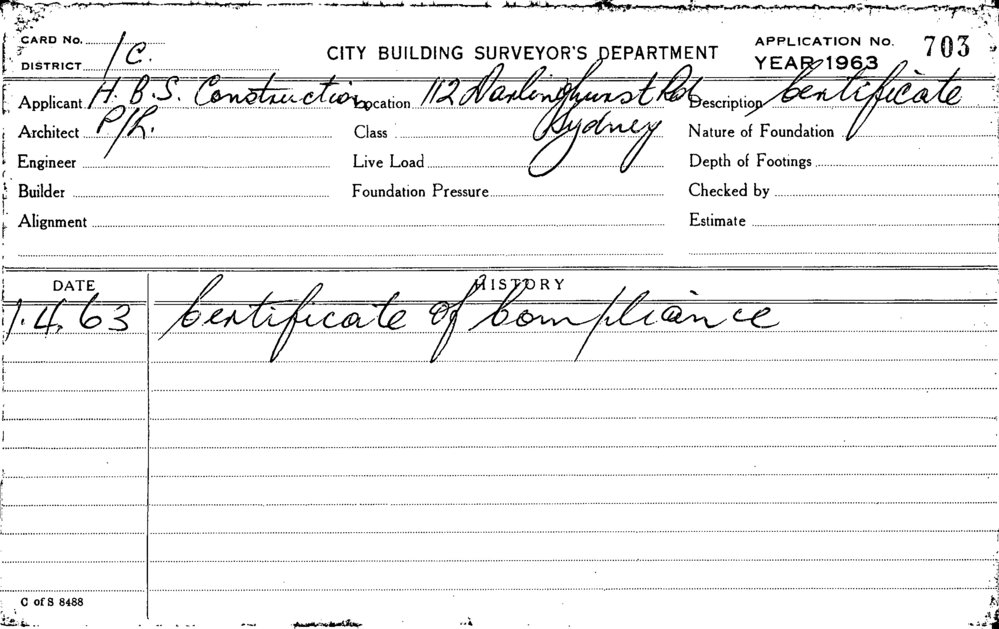 CARD No.
DISTRICT 1C.
CITY BUILDING SURVEYOR'S DEPARTMENT
APPLICATION No. 703
YEAR 1963
Applicant H. B. S. Construction Location 112 Darlinghurst Rd Description Certificate
Architect P/L. Class Sydney Nature of Foundation
Engineer Live Load Depth of Footings
Builder Foundation Pressure Checked by
Alignment Estimate
DATE HISTORY
1.4.63 Certificate of Compliance
C of S 8488